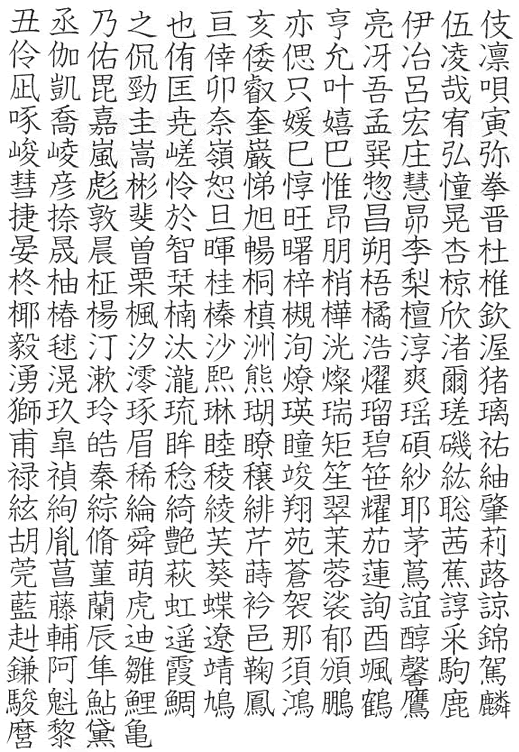 丑丞乃之也亘亥亦亨亮伊伍伎
伶伽佑侃侑倖倭偲允冴冶凌凛
凪凱毘勁匡卯叡只叶吾呂哉唄
啄喬嘉圭尭奈奎媛嬉孟宏宥寅
峻崚嵐嵩嵯嶺巌巳巴巽庄弘弥
彗彦彪彬怜恕悌惇惟惣慧憧拳
捷捺敦斐於旦旭旺昂昌昴晃晋
晏晟晨曽智暉暢曙朋朔李杏杜
柊柚柾栗栞桂桐梓梢梧梨椋椎
椰椿楊楓楠榛槙槻樺橘檀欣欽
毅毬汀汐汰沙洲洵洸浩淳渚渥
湧滉漱澪瀧熙熊燎燦燿爽爾猪
獅玖玲琢琉琳瑚瑛瑞瑠瑶瑳璃
甫皐皓眉眸睦瞭瞳矩碧碩磯祐
禄禎秦稀稔稜穣竣笙笹紗紘紬
絃絢綜綸綺綾緋翔翠耀耶聡肇
胡胤脩舜艶芙芹苑茉茄茅茜莉
莞菖菫萌萩葵蒔蒼蓉蓮蔦蕉蕗
藍藤蘭虎虹蝶衿袈裟詢誼諄諒
赳輔辰迪遥遼邑那郁酉醇采錦
鎌阿隼雛霞靖鞠須頌颯馨駒駕
駿魁鮎鯉鯛鳩鳳鴻鵬鶴鷹鹿麟
麿黎黛亀